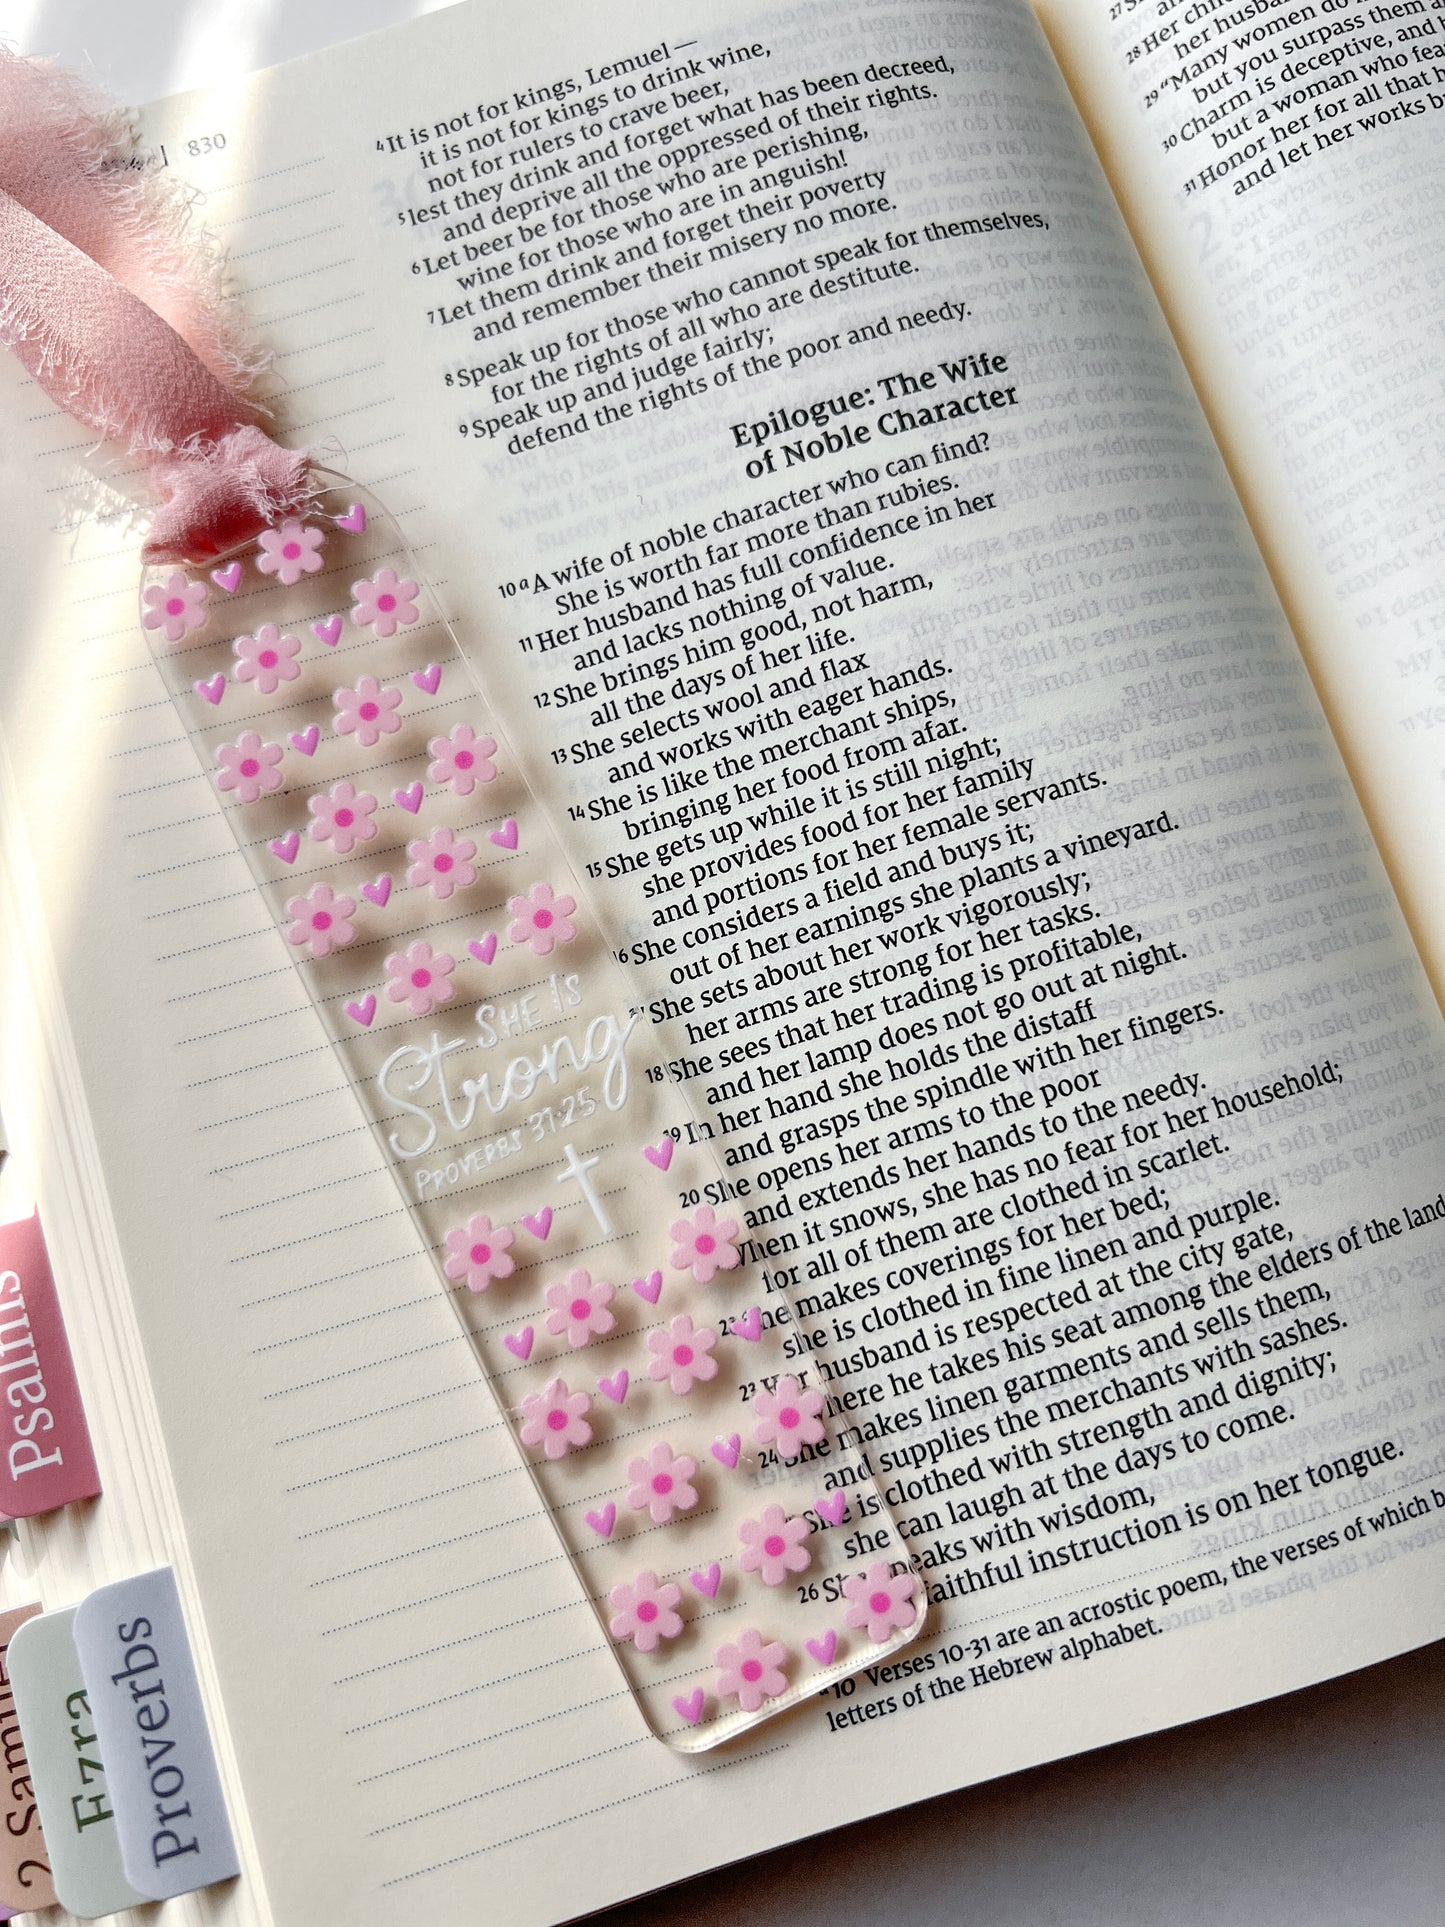 830
4 It is not for kings, Lemuel—
it is not for kings to drink wine,
not for rulers to crave beer,
5 lest they drink and forget what has been decreed,
and deprive all the oppressed of their rights.
6 Let beer be for those who are perishing,
wine for those who are in anguish!
7 Let them drink and forget their poverty
and remember their misery no more.
8 Speak up for those who cannot speak for themselves,
for the rights of all who are destitute.
9 Speak up and judge fairly;
defend the rights of the poor and needy.
Epilogue: The Wife
of Noble Character
10 a A wife of noble character who can find?
She is worth far more than rubies.
11 Her husband has full confidence in her
and lacks nothing of value.
12 She brings him good, not harm,
all the days of her life.
13 She selects wool and flax
and works with eager hands.
14 She is like the merchant ships,
bringing her food from afar.
15 She gets up while it is still night;
she provides food for her family
and portions for her female servants.
16 She considers a field and buys it;
out of her earnings she plants a vineyard.
She sets about her work vigorously;
her arms are strong for her tasks.
18 She sees that her trading is profitable,
and her lamp does not go out at night.
19 In her hand she holds the distaff
and grasps the spindle with her fingers.
20 She opens her arms to the poor
and extends her hands to the needy.
When it snows, she has no fear for her household;
for all of them are clothed in scarlet.
makes coverings for her bed;
she is clothed in fine linen and purple.
23 Her husband is respected at the city gate,
where he takes his seat among the elders of the land
24 She makes linen garments and sells them,
and supplies the merchants with sashes.
She is clothed with strength and dignity;
she can laugh at the days to come.
26 She speaks with wisdom,
faithful instruction is on her tongue.
10 Verses 10-31 are an acrostic poem, the verses of which
letters of the Hebrew alphabet.
28 Her
her husband
29 "Many women do
but you surpass them
30 Charm is deceptive, and
but a woman who
31 Honor her for all that
and let her works
SHE IS
Strong
PROVERBS 31:25
Psalms
2 Samuel
Ezra
Proverbs